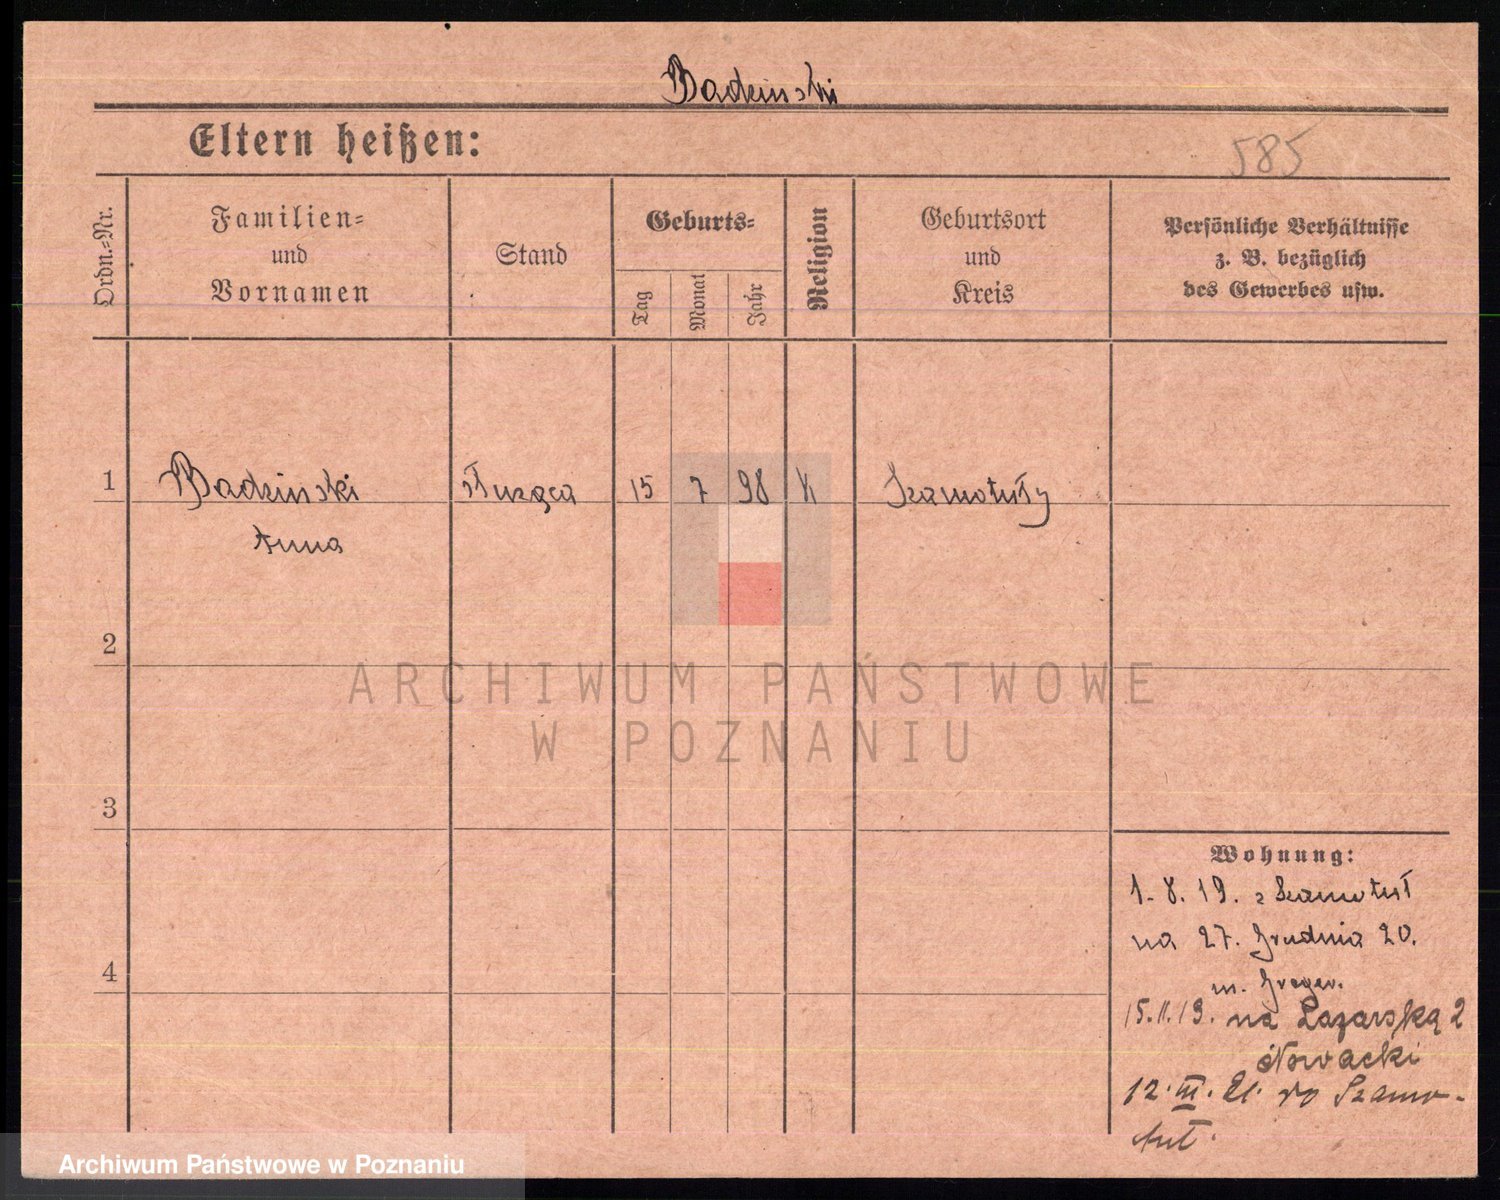 Badzinski
Eltern heißen:
585
Ordn.=Nr.
Familien=
und
Vornamen
Stand
Geburts=
Tag
Monat
Jahr
Religion
Geburtsort
und
Kreis
Persönliche Verhältnisse
z. B. bezüglich
des Gewerbes usw.
1 Badzinski służąca 15 7 98 K Szamotuły
Anna
2
ARCHIWUM PAŃSTWOWE
W POZNANIU
3
Wohnung:
1. 8. 19. z Szamotuł
na 27. Grudnia 20.
m.
4
15.11.19. na Łazarską 2
Nowacki
12. III. 21. do Szamo-
tuł.
Archiwum Państwowe w Poznaniu